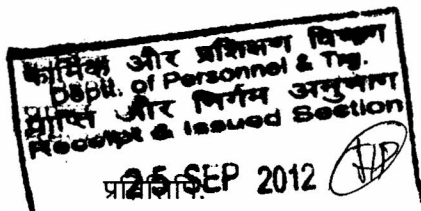 कार्मिक और प्रशिक्षण विभाग
Deptt. of Personnel & Trg.
प्राप्ति और निर्गम अनुभाग
Receipt & Issued Section
प्रतिलिपि:
25 SEP 2012